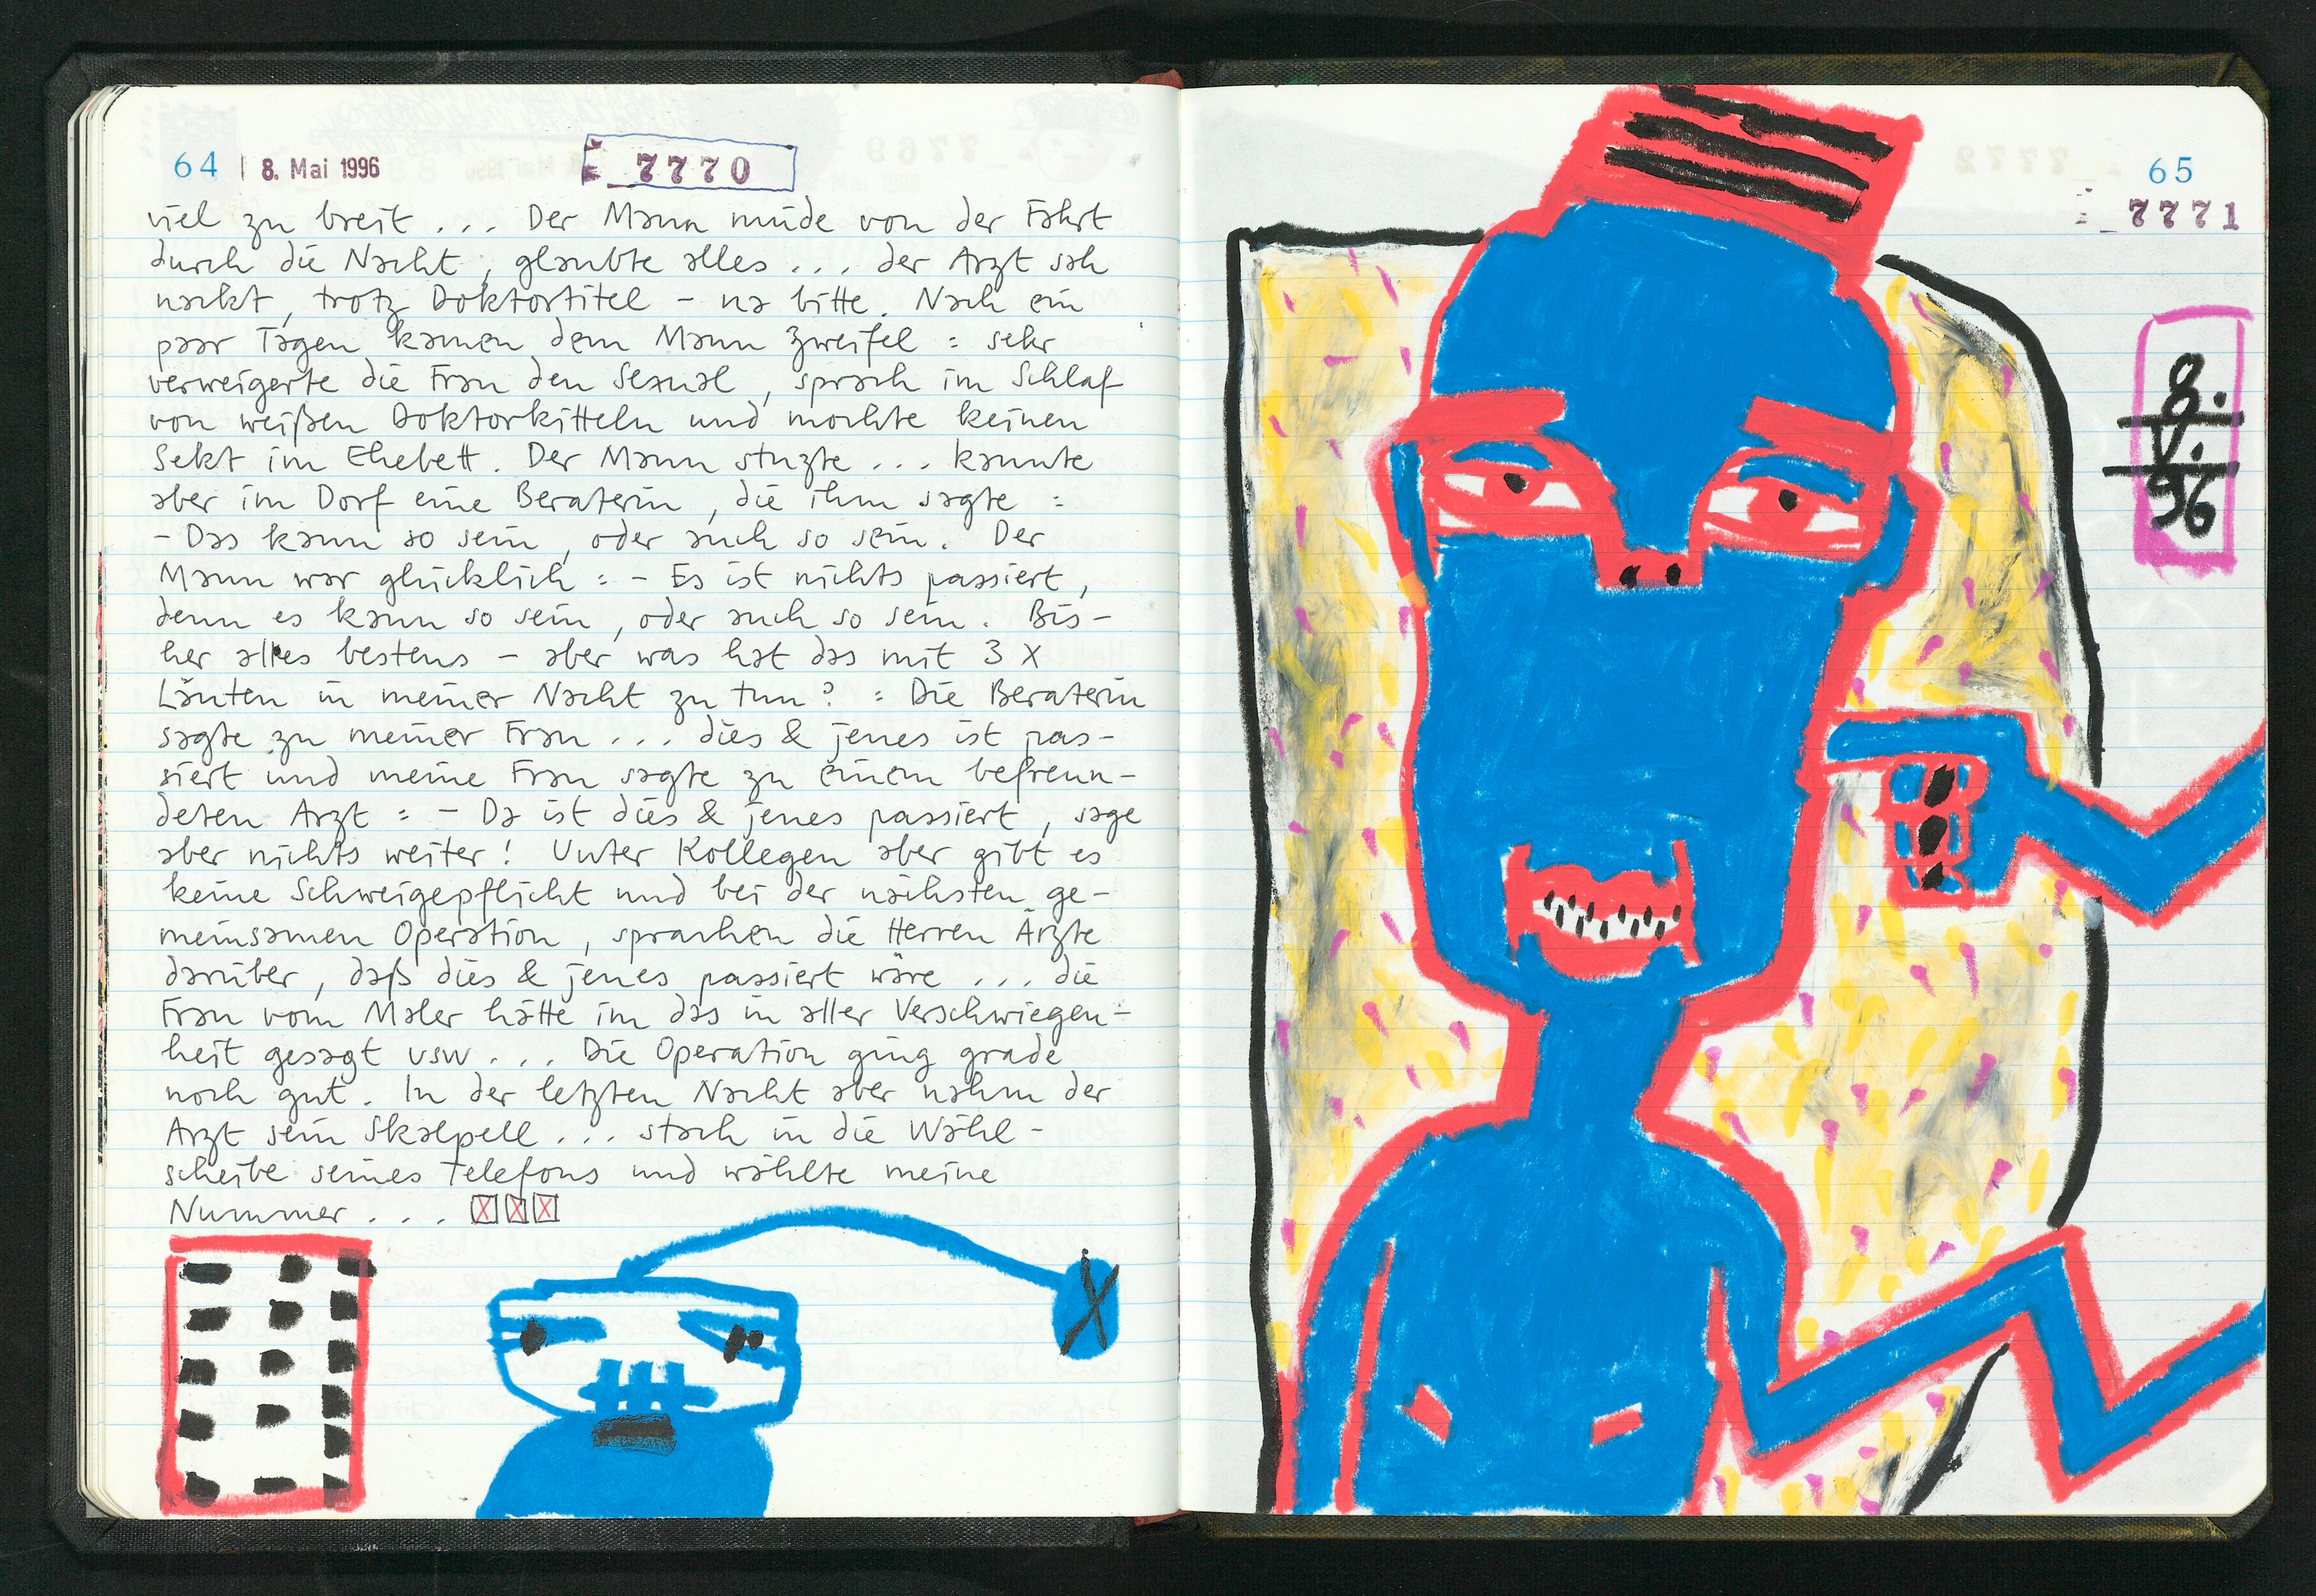 64 | 8. Mai 1996
7770
viel zu breit ... Der Mann müde von der Fahrt
durch die Nacht, glaubte alles ... der Arzt sah
nackt, trotz Doktortitel - na bitte. Nach ein
paar Tagen kamen dem Mann Zweifel : sehr
verweigerte die Frau den Sexual, sprach im Schlaf
von weißen Doktorkitteln und mochte keinen
Sekt im Ehebett. Der Mann stuzte ... kannte
aber im Dorf eine Beraterin, die ihm sagte :
- Das kann so sein, oder auch so sein. Der
Mann war glücklich : - Es ist nichts passiert,
denn es kann so sein, oder auch so sein. Bis-
her alles bestens - aber was hat das mit 3 X
Läuten in meiner Nacht zu tun? : Die Beraterin
sagte zu meiner Frau ... dies & jenes ist pas-
siert und meine Frau sagte zu einem befreun-
deten Arzt : - Da ist dies & jenes passiert, sage
aber nichts weiter! Unter Kollegen aber gibt es
keine Schweigepflicht und bei der nächsten ge-
meinsamen Operation, sprachen die Herren Ärzte
darüber, daß dies & jenes passiert wäre ... die
Frau vom Maler hätte im das in aller Verschwiegen-
heit gesagt usw ... Die Operation ging grade
noch gut. In der letzten Nacht aber nahm der
Arzt sein Skalpell ... stach in die Wähl-
scheibe seines Telefons und wählte meine
Nummer ... X X X
X
65
7771
8.
V.
96